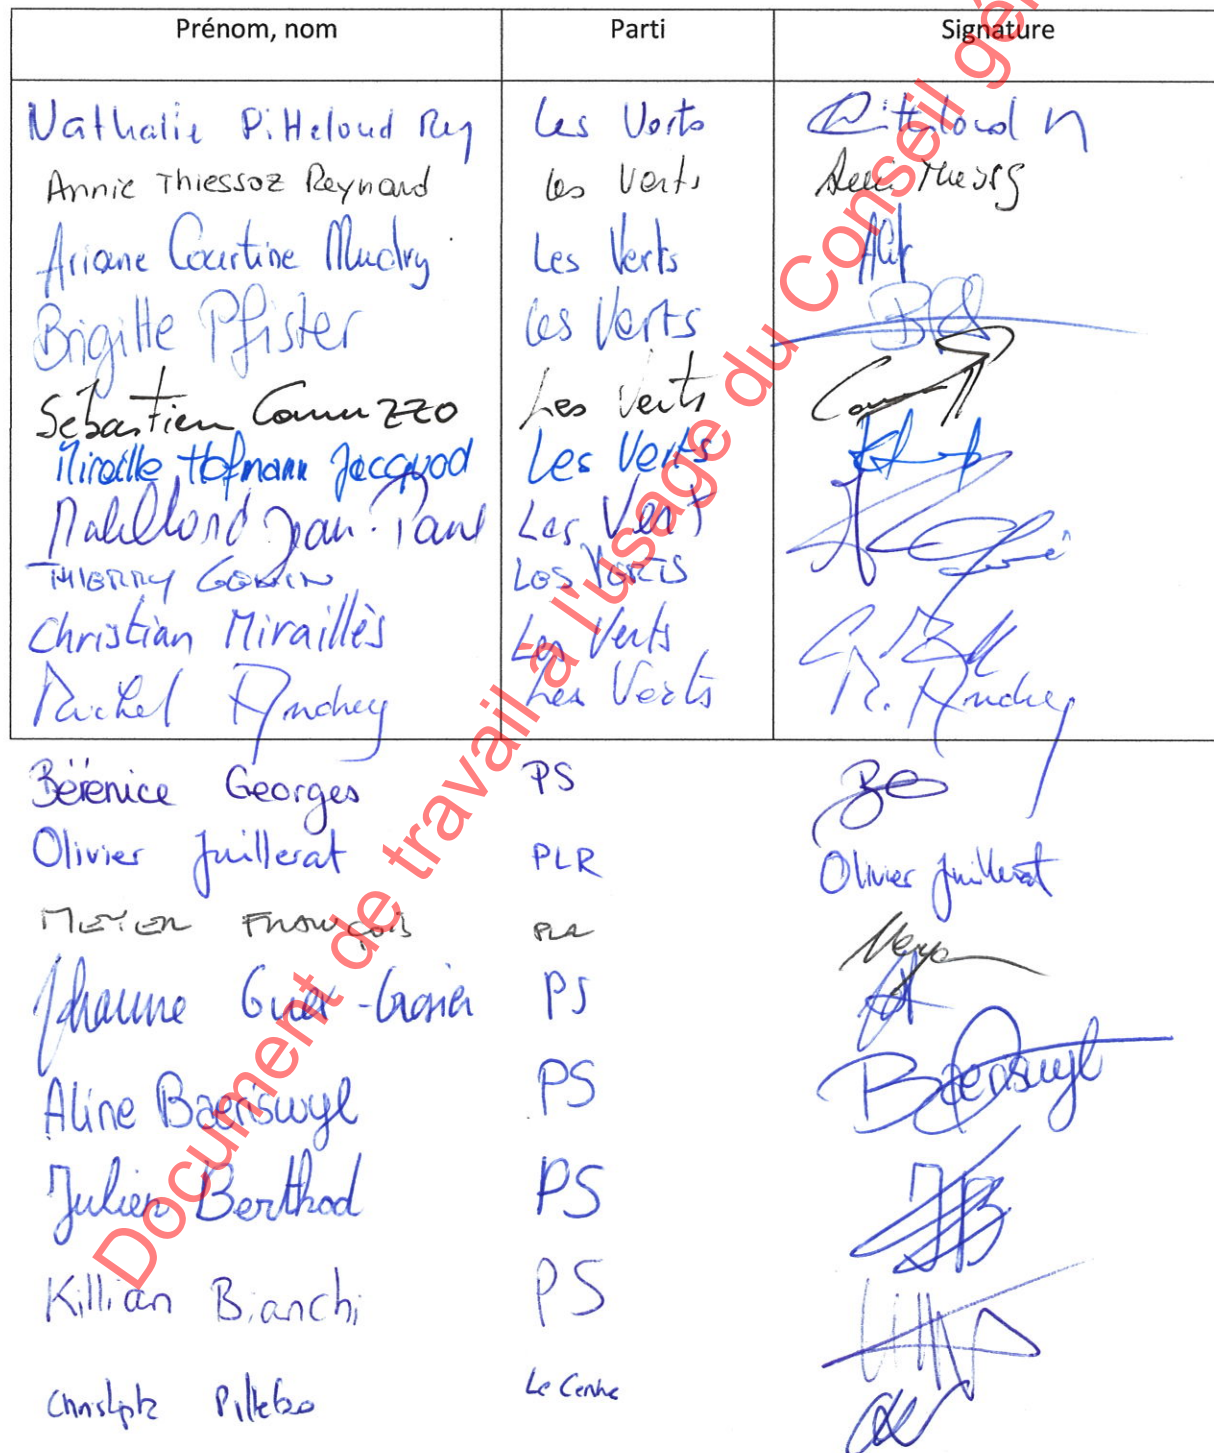 Prénom, nom Parti Signature
Nathalie Pitteloud Rey Les Verts Pitteloud N
Annie Thiessoz Reynard Les Verts
Ariane Courtine Mudry Les Verts
Brigitte Pfister Les Verts
Sébastien Camuzzo Les Verts
Mireille Hofmann Jacquod Les Verts
Maillard Jean-Paul Les Vert
THIERRY Les Verts
Christian Miraillès Les Verts
Michel Andrey Les Verts M. Andrey
Bérénice Georges PS
Olivier Juillerat PLR Olivier Juillerat
MEYER François PLR Meyer
Johanne Guex-Crosier PS
Aline Baeriswyl PS Baeriswyl
Julien Berthod PS JB
Killian Bianchi PS
Christophe Le Centre
Document de travail à l'usage du Conseil gén